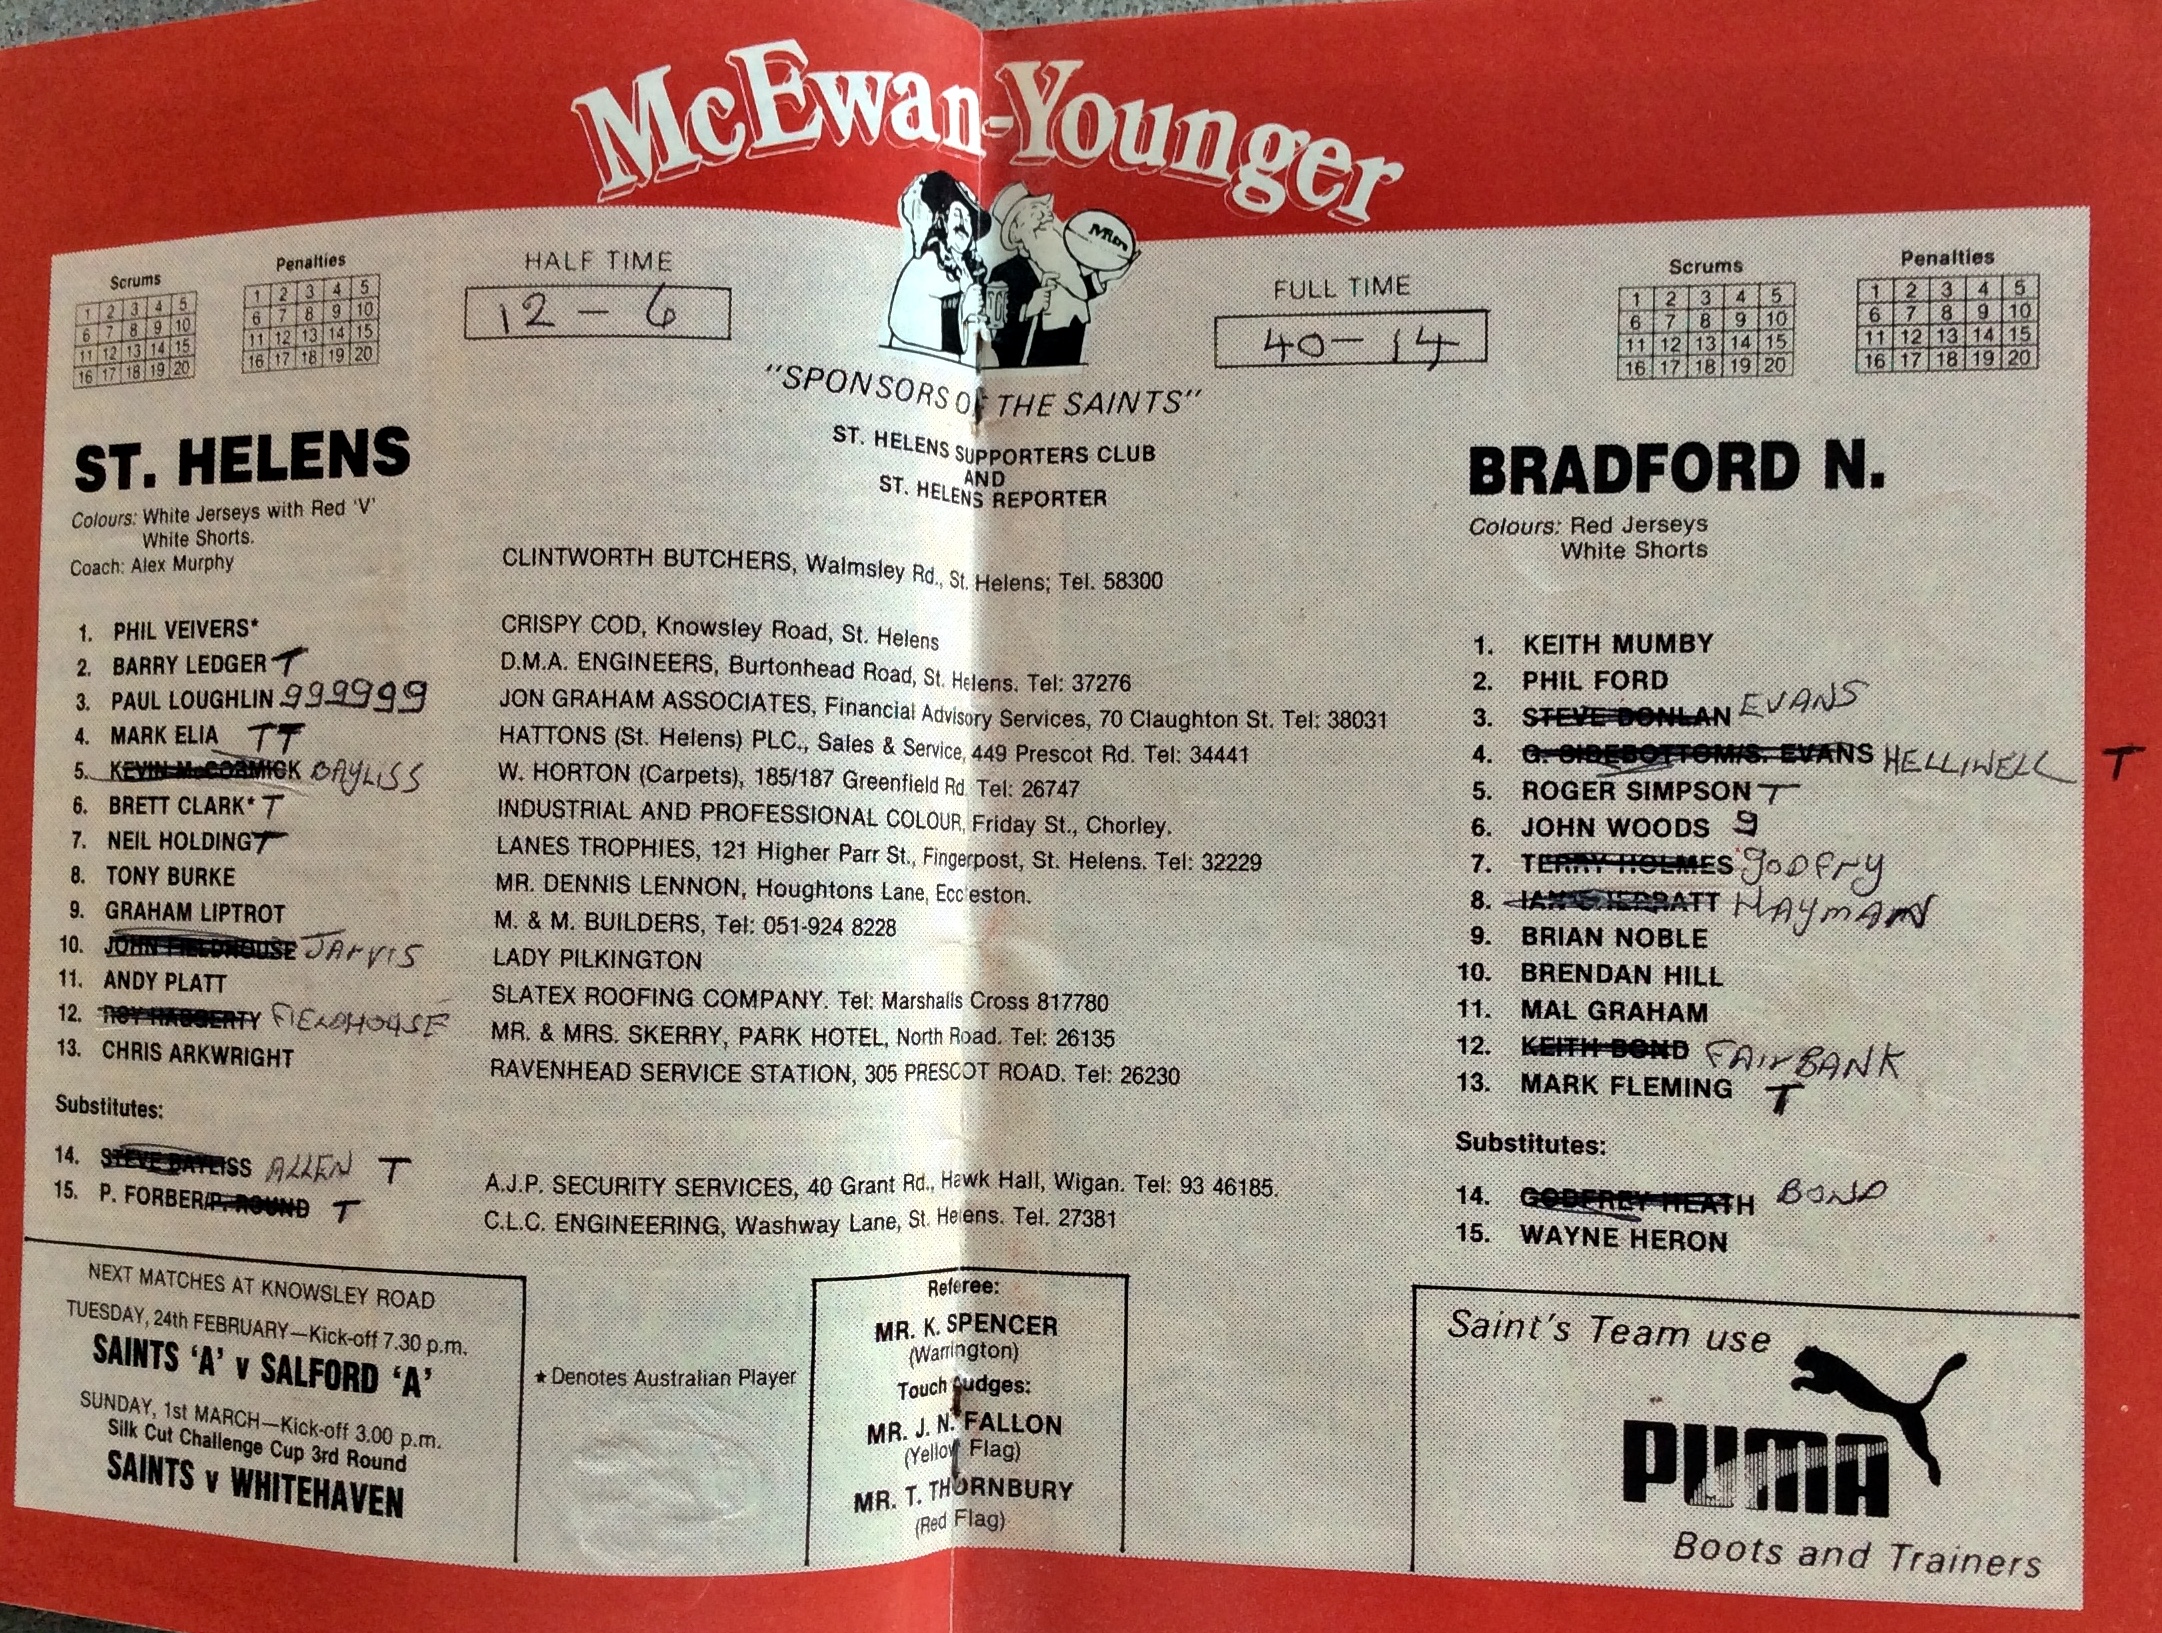 McEwan-Younger
Mitre
"SPONSORS OF THE SAINTS"
ST. HELENS SUPPORTERS CLUB
AND
ST. HELENS REPORTER
Scrums
1 2 3 4 5
6 7 8 9 10
11 12 13 14 15
16 17 18 19 20
Penalties
1 2 3 4 5
6 7 8 9 10
11 12 13 14 15
16 17 18 19 20
HALF TIME
12 - 6
FULL TIME
40 - 14
Scrums
1 2 3 4 5
6 7 8 9 10
11 12 13 14 15
16 17 18 19 20
Penalties
1 2 3 4 5
6 7 8 9 10
11 12 13 14 15
16 17 18 19 20
ST. HELENS
Colours: White Jerseys with Red 'V'
White Shorts.
Coach: Alex Murphy
1. PHIL VEIVERS*
2. BARRY LEDGER T
3. PAUL LOUGHLIN 999999
4. MARK ELIA TT
5. KEVIN McCORMICK BAYLISS
6. BRETT CLARK* T
7. NEIL HOLDING T
8. TONY BURKE
9. GRAHAM LIPTROT
10. JOHN FIELDHOUSE JARVIS
11. ANDY PLATT
12. ROY HAGGERTY FIELDHOUSE
13. CHRIS ARKWRIGHT
Substitutes:
14. STEVE BAYLISS ALLEN T
15. P. FORBER/P. ROUND T
CLINTWORTH BUTCHERS, Walmsley Rd., St. Helens; Tel. 58300
CRISPY COD, Knowsley Road, St. Helens
D.M.A. ENGINEERS, Burtonhead Road, St. Helens. Tel: 37276
JON GRAHAM ASSOCIATES, Financial Advisory Services, 70 Claughton St. Tel: 38031
HATTONS (St. Helens) PLC., Sales & Service, 449 Prescot Rd. Tel: 34441
W. HORTON (Carpets), 185/187 Greenfield Rd. Tel: 26747
INDUSTRIAL AND PROFESSIONAL COLOUR, Friday St., Chorley.
LANES TROPHIES, 121 Higher Parr St., Fingerpost, St. Helens. Tel: 32229
MR. DENNIS LENNON, Houghtons Lane, Eccleston.
M. & M. BUILDERS, Tel: 051-924 8228
LADY PILKINGTON
SLATEX ROOFING COMPANY. Tel: Marshalls Cross 817780
MR. & MRS. SKERRY, PARK HOTEL, North Road. Tel: 26135
RAVENHEAD SERVICE STATION, 305 PRESCOT ROAD. Tel: 26230
A.J.P. SECURITY SERVICES, 40 Grant Rd., Hawk Hall, Wigan. Tel: 93 46185.
C.L.C. ENGINEERING, Washway Lane, St. Helens. Tel. 27381
BRADFORD N.
Colours: Red Jerseys
White Shorts
1. KEITH MUMBY
2. PHIL FORD
3. STEVE DONLAN EVANS
4. G. SIDEBOTTOM/S. EVANS HELLIWELL T
5. ROGER SIMPSON T
6. JOHN WOODS 9
7. TERRY HOLMES GODFRY
8. IAN SHERRATT HAYMAN
9. BRIAN NOBLE
10. BRENDAN HILL
11. MAL GRAHAM
12. KEITH BOND FAIRBANK
13. MARK FLEMING T
Substitutes:
14. GODFREY HEATH BOND
15. WAYNE HERON
NEXT MATCHES AT KNOWSLEY ROAD
TUESDAY, 24th FEBRUARY—Kick-off 7.30 p.m.
SAINTS 'A' v SALFORD 'A'
SUNDAY, 1st MARCH—Kick-off 3.00 p.m.
Silk Cut Challenge Cup 3rd Round
SAINTS v WHITEHAVEN
★ Denotes Australian Player
Referee:
MR. K. SPENCER
(Warrington)
Touch Judges:
MR. J. N. FALLON
(Yellow Flag)
MR. T. THORNBURY
(Red Flag)
Saint's Team use
PUMA
Boots and Trainers